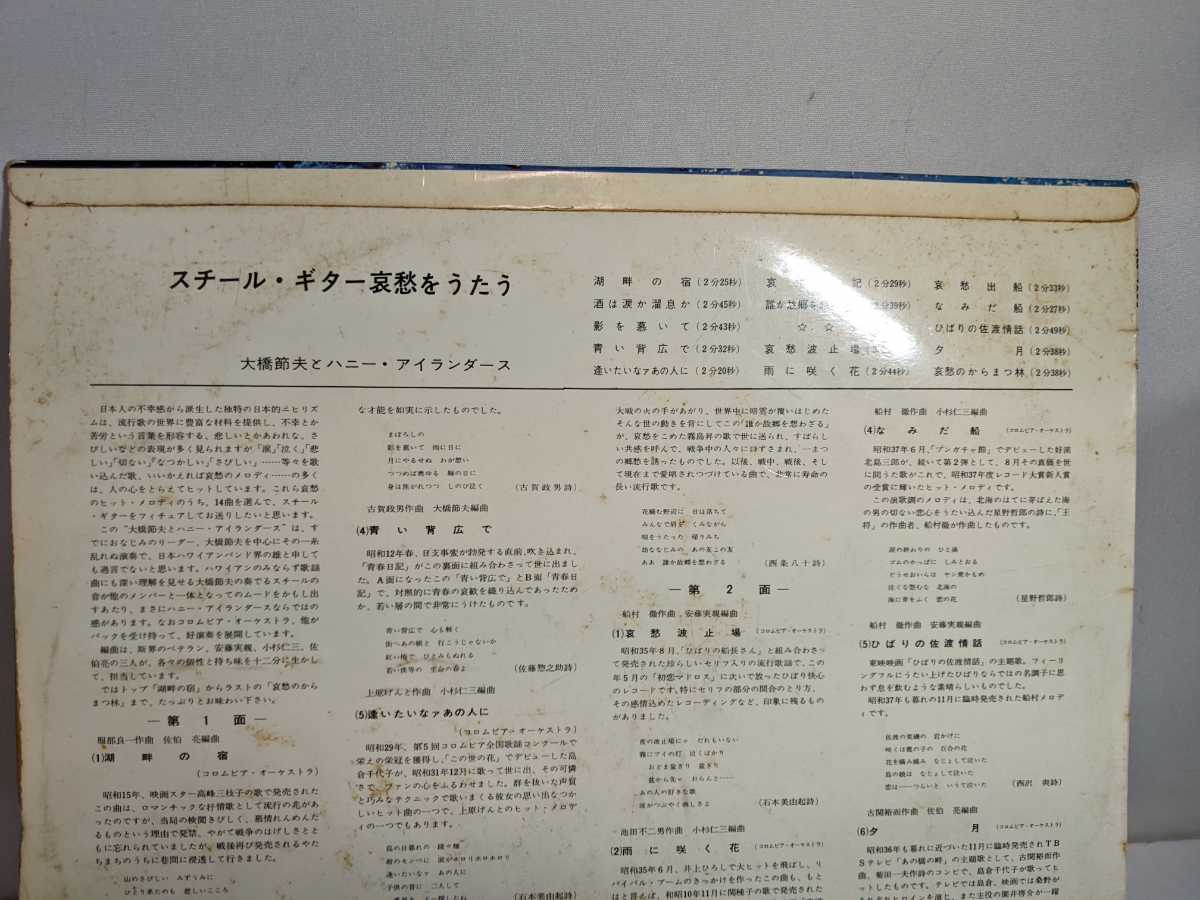 スチール・ギター哀愁をうたう
大橋節夫とハニー・アイランダース
湖畔の宿(2分25秒)
酒は涙か溜息か(2分45秒)
影を慕いて(2分43秒)
青い背広で(2分32秒)
逢いたいなァあの人に(2分20秒)
哀 記(2分29秒)
誰か故郷を 39秒)
☆ ☆
哀愁波止場
雨に咲く花(2分44秒)
哀愁出船(2分33秒)
なみだ船(2分27秒)
ひばりの佐渡情話(2分49秒)
夕月(2分38秒)
哀愁のからまつ林(2分38秒)
日本人の不幸感から派生した独特の日本的ニヒリズ
ムは、流行歌の世界に豊富な材料を提供し、不幸とか
苦労という言葉を形容する、悲しいとかあわれな、さ
びしいなどの表現が多く見られますが「涙」「泣く」「悲
しい」「切ない」「なつかしい」「さびしい」……等々を歌
い込んだ歌、いいかえれば哀愁のメロディ……の多く
は、人の心をとらえてヒットしています。これら哀愁
のヒット・メロディのうち、14曲を選んで、スチール
・ギターをフィチュアしてお送りしたいと思います。
この“大橋節夫とハニー・アイランダース”は、す
でにおなじみのリーダー、大橋節夫を中心にその一糸
乱れぬ演奏で、日本ハワイアンバンド界の雄と申して
も過言でないと思います。ハワイアンのみならず歌謡
曲にも深い理解を見せる大橋節夫の奏でるスチールの
音が他のメンバーと一体となってのムードをかもし出
すあたり、まさにハニー・アイランダースならではの
感があります。なおコロムビア・オーケストラ、他が
バックを受け持って、好演奏を展開しています。
編曲は、斯界のベテラン、安藤実親、小杉仁三、佐
伯亮の三人が、各々の個性と持ち味を十二分に生かし
て、担当しています。
ではトップ「湖畔の宿」からラストの「哀愁のから
まつ林」まで、たっぷりとお味わい下さい。
― 第1面 ―
服部良一作曲 佐伯 亮編曲
(1)湖畔の宿
(コロムビア・オーケストラ)
昭和15年、映画スター高峰三枝子の歌で発売された
この曲は、ロマンチックな抒情歌として流行の兆があ
ったのですが、当局の検閲きびしく、慕情れんめんた
るものという理由で発禁、やがて戦争のはげしさととも
もに忘れられていましたが、戦後再び発売されるやた
ちまちのうちに巷間に浸透して行きました。
山のさびしい みずうみに
ひとり来たのも 悲しいこころ
な才能を如実に示したものでした。
まぼろしの
影を慕いて 雨に日に
月にやるせぬ わが想い
つつめば燃ゆる 胸の火に
身は焦がれつつ しのび泣く
(古賀政男詩)
古賀政男作曲 大橋節夫編曲
(4)青い背広で
昭和12年春、日支事変が勃発する直前、吹き込まれ、
「青春日記」がこの裏面に組み合わさって世に出まし
た。A面になったこの「青い背広で」とB面「青春日
記」で、対照的に青春の哀歓を織り込んであったため
か、若い層の間で非常にうけたものです。
青い背広で 心も軽く
街へあの娘と 行こうじゃないか
紅い椿で ひとみもぬれる
若い僕等の 生命の春よ
(佐藤惣之助詩)
上原げんと作曲 小杉仁三編曲
(5)逢いたいなァあの人に
(コロムビア・オーケストラ)
昭和29年、第5回コロムビア全国歌謡コンクールで
栄えの栄冠を獲得し、「この世の花」でデビューした島
倉千代子が、昭和31年12月に歌って世に出、その可憐
さで、ファンの心をふるわせました。群を抜いた声質
と巧みなテクニックで歌いまくる彼女の思い出もなつか
しいヒット曲の一つで、上原げんとのヒット・メロデ
ィの一つでもあります。
島の日暮れの 段々畑
紺のモンペに 涙がホロリホロホロリ
逢いたいなァ あの人に
子供の昔に 二人して
(石本美由起詩)
大戦の火の手があがり、世界中に暗雲が覆いはじめた
そんな世の動きを背にしてこの「誰か故郷を想わざる」
が、哀愁をこめた霧島昇の歌で世に送られ、すばらし
い共感を呼んで、戦争中の人々に口ずさまれ、一まつ
の郷愁を誘ったものでした。以後、戦中、戦後、そし
て現在まで愛唱されつづけている曲で、非常に寿命の
長い流行歌です。
花摘む野辺に 日は落ちて
みんなで肩を くみながら
唄をうたった 帰りみち
幼ななじみの あの友この友
ああ 誰か故郷を想わざる
(西条八十詩)
― 第2面 ―
船村 徹作曲 安藤実親編曲
(1)哀愁波止場
(コロムビア・オーケストラ)
昭和35年8月、「ひばりの船長さん」と組み合わさっ
て発売された珍らしいセリフ入りの流行歌謡で、この
年5月の「初恋マドロス」に次いで放ったひばり快心
のレコードです。特にセリフの部分の間合のとり方、
その感情込めたレコーディングなど、印象に残るもの
がありました。
夜の波止場にゃ だれもいない
霧にブイの灯 泣くばかり
おどま盆ぎり 盆ぎり
盆から先ゃ おらんと……
あの人の好きな歌
波がつぶやく淋しさよ
(石本美由起詩)
池田不二男作曲 小杉仁三編曲
(2)雨に咲く花
(コロムビア・オーケストラ)
昭和35年6月、井上ひろしで大ヒットを飛ばし、リ
バイバル・ブームのきっかけを作ったこの曲も、もと
はと言えば、昭和10年11月に関種子の歌で発売された
船村 徹作曲 小杉仁三編曲
(4)なみだ船
(コロムビア・オーケストラ)
昭和37年6月、「ブンガチャ節」でデビューした好漢
北島三郎が、続いて第2弾として、8月その真価を世
に問うた歌がこれで、昭和37年度レコード大賞新人賞
の受賞に輝いたヒット・メロディです。
この演歌調のメロディは、北海のはてに芽ばえた海
の男の切ない恋心をうたい込んだ星野哲郎の詩に、「王
将」の作曲者、船村徹が作曲したものです。
涙の終わりの ひと滴
ゴムのかっぱに しみとおる
どうせおいらは ヤン衆かもめ
泣くな怨むな 北海の
海に芽をふく 恋の花
(星野哲郎詩)
船村 徹作曲 安藤実親編曲
(5)ひばりの佐渡情話
(コロムビア・オーケストラ)
東映映画「ひばりの佐渡情話」の主題歌。フィーリ
ングフルにうたい上げたひばりならではの名調子に思
わず息を飲むような素晴らしいものでした。
昭和37年も暮れの11月に臨時発売された船村メロデ
ィです。
佐渡の荒磯の 岩かげに
咲くは鹿の子の 百合の花
花を摘み摘み なじょして泣いた
島の娘は なじょして泣いた
恋は……つらいと いうて泣いた
(西沢 爽詩)
古関裕而作曲 佐伯 亮編曲
(6)夕月
(コロムビア・オーケストラ)
昭和36年も暮れに近づいた11月に臨時発売されTB
Sテレビ「あの橋の畔」の主題歌として、古関裕而作
曲、菊田一夫作詩のコンビで、島倉千代子が歌ってヒ
ットしたものです。テレビでは島倉、映画では桑野が